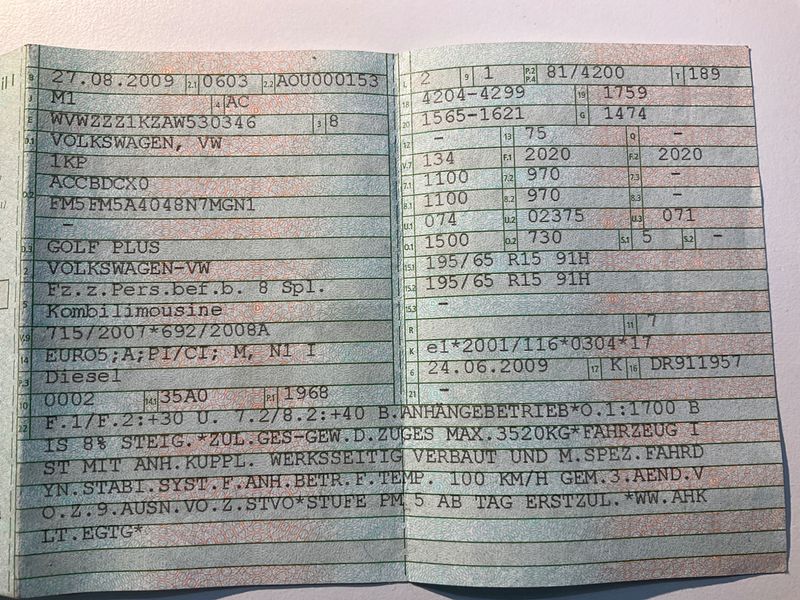 B 27.08.2009 2.1 0603 2.2 AOU000153
J M1 4 AC
E WVWZZZ1KZAW530346 3 8
D.1 VOLKSWAGEN, VW
1KP
D.2 ACCBDCX0
FM5FM5A4048N7MGN1
-
D.3 GOLF PLUS
2 VOLKSWAGEN-VW
Fz.z.Pers.bef.b. 8 Spl.
5 Kombilimousine
V.9 715/2007*692/2008A
14 EURO5;A;PI/CI; M, N1 I
P.3 Diesel
10 0002 14.1 35A0 P.1 1968
L 2 9 1 P.2 P.4 81/4200 T 189
18 4204-4299 19 1759
20 1565-1621 G 1474
12 - 13 75 Q -
V.7 134 F.1 2020 F.2 2020
7.1 1100 7.2 970 7.3 -
8.1 1100 8.2 970 8.3 -
U.1 074 U.2 02375 U.3 071
O.1 1500 O.2 730 S.1 5 S.2 -
15.1 195/65 R15 91H
15.2 195/65 R15 91H
15.3 -
R 11 7
K e1*2001/116*0304*17
6 24.06.2009 17 K 16 DR911957
21 -
22 F.1/F.2:+30 U. 7.2/8.2:+40 B.ANHÄNGEBETRIEB*O.1:1700 B
IS 8% STEIG.*ZUL.GES-GEW.D.ZUGES MAX.3520KG*FAHRZEUG I
ST MIT ANH.KUPPL. WERKSSEITIG VERBAUT UND M.SPEZ.FAHRD
YN.STABI.SYST.F.ANH.BETR.F.TEMP. 100 KM/H GEM.3.AEND.V
O.Z.9.AUSN.VO.Z.STVO*STUFE PM 5 AB TAG ERSTZUL.*WW.AHK
LT.EGTG*